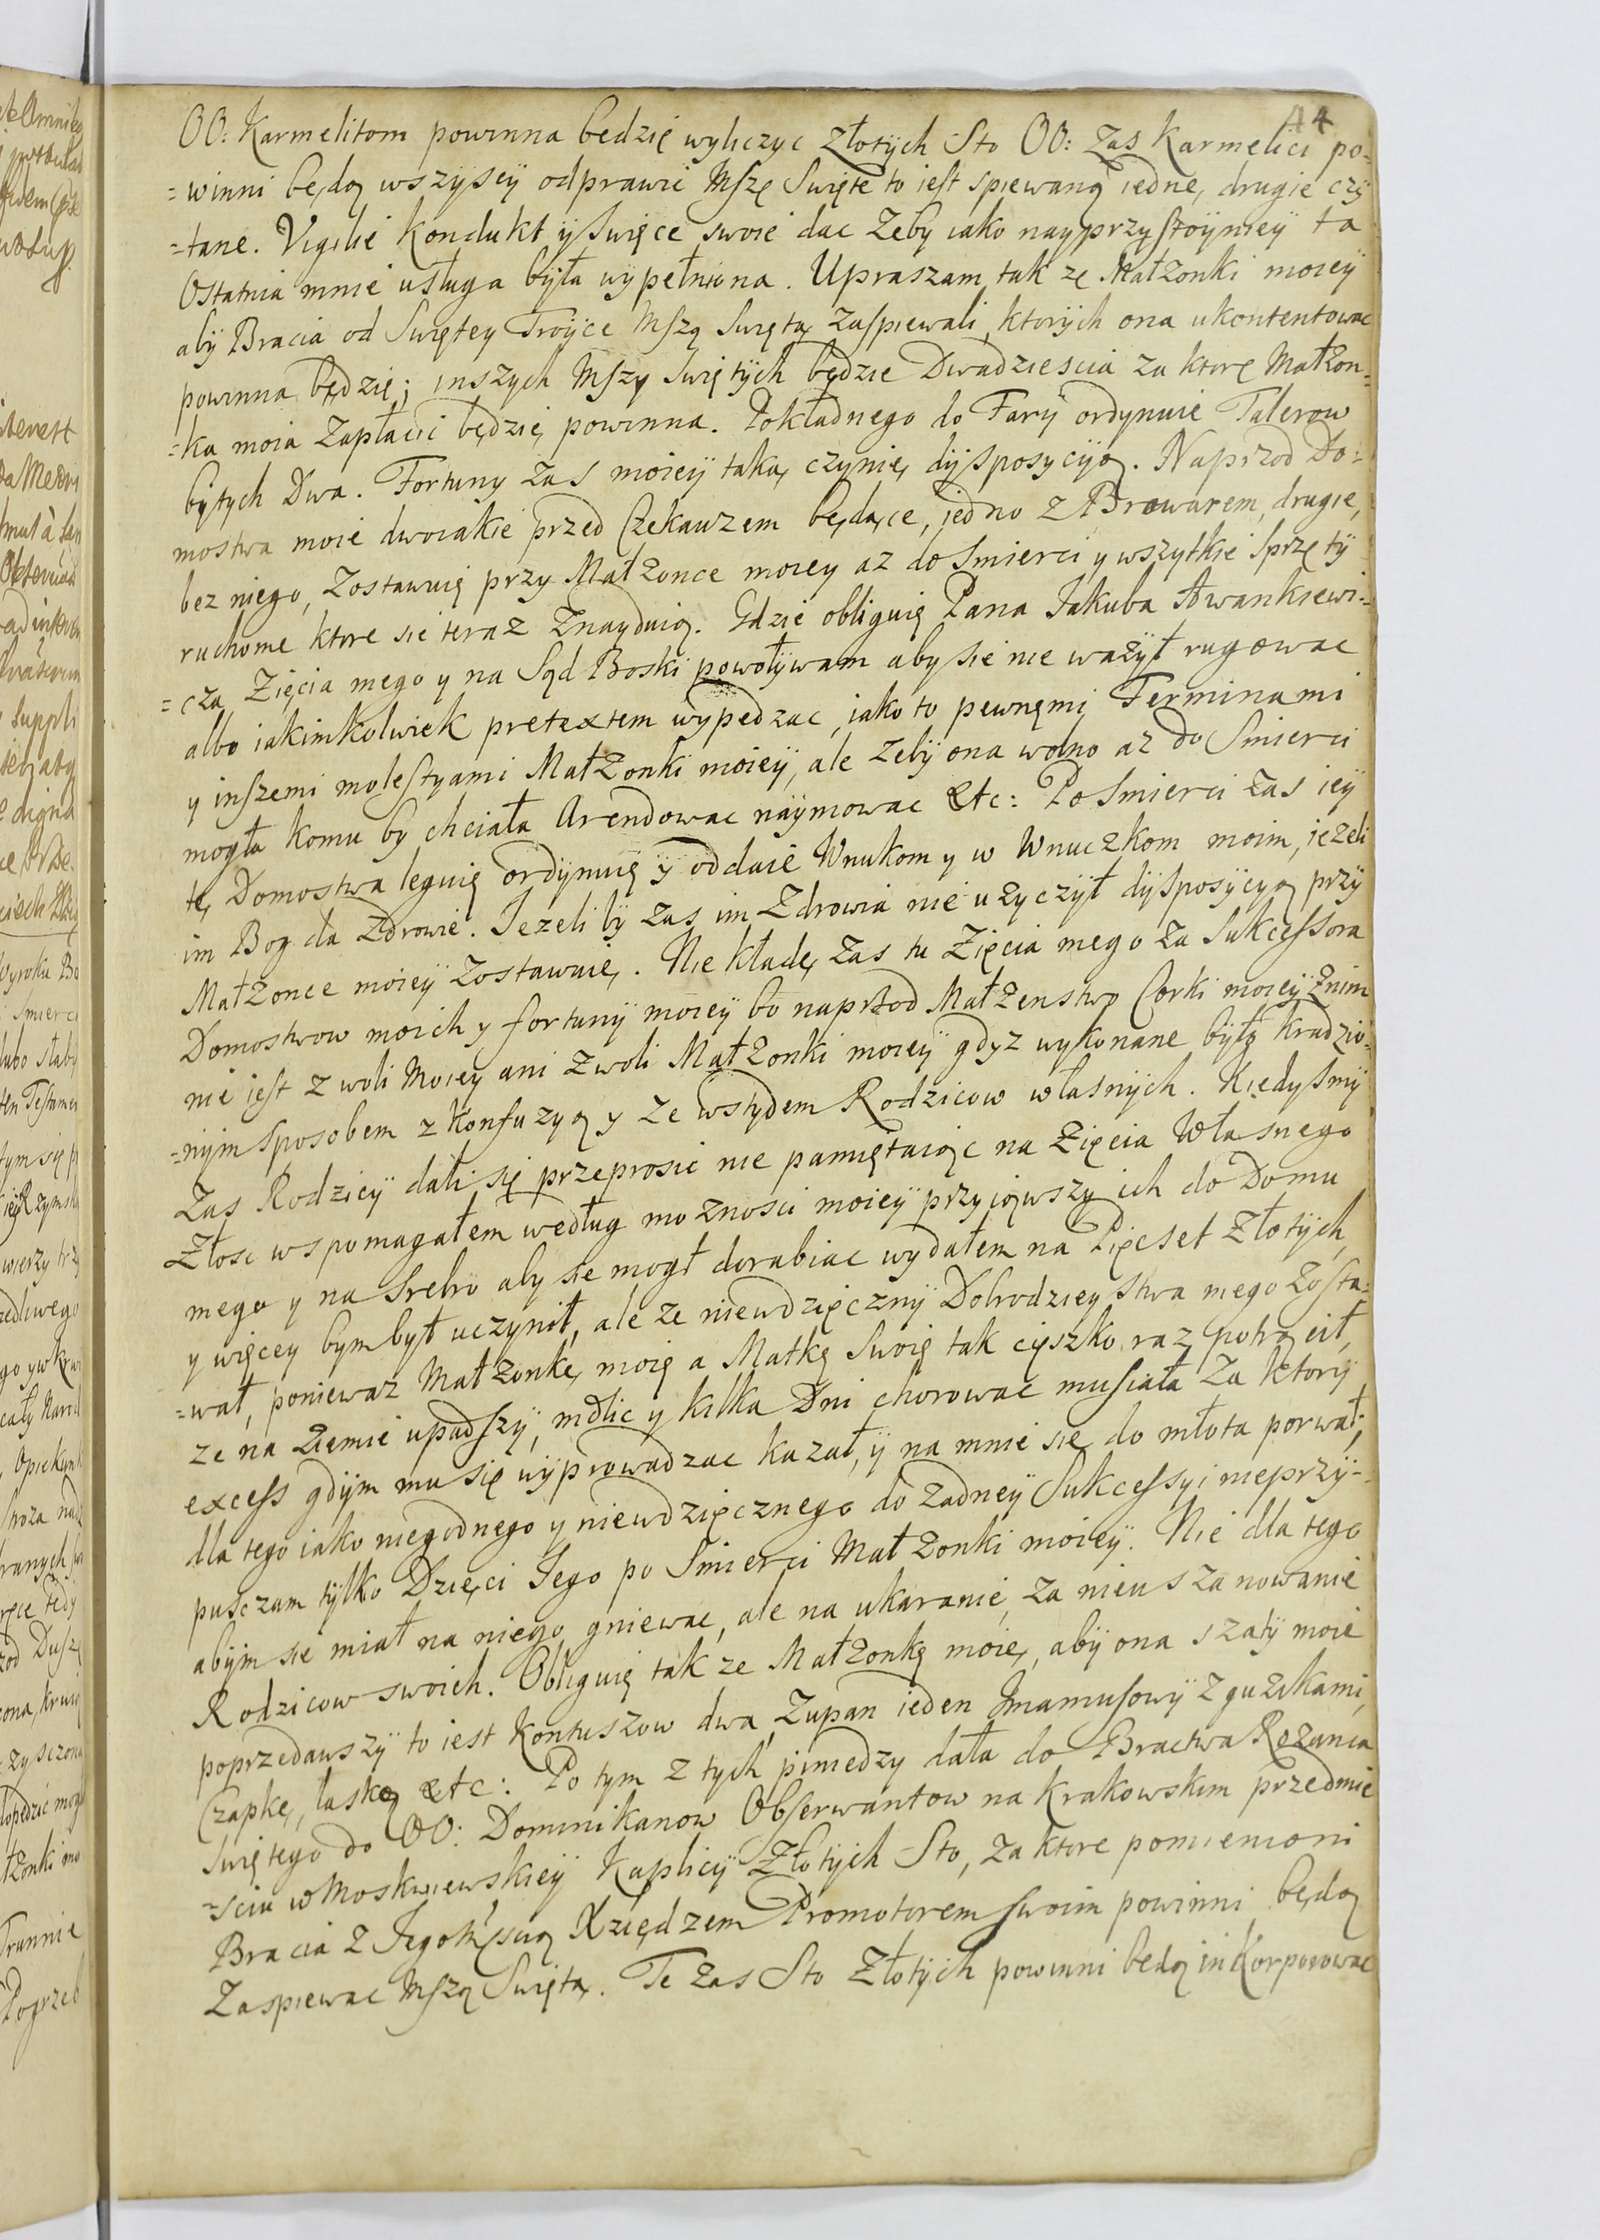 44
OO: Karmelitom powinna będzie wyliczyc Złotÿch Sto OO: zas Karmelici po=
=winni będą wszyscÿ odprawić Mszę Swięte to iest spiewaną iednę, drugie czÿ
=tane. Vigilie Kondukt ÿ swięce swoie dac Zeby iako nayprzystoÿnieÿ ta
Ostatnia mnie usługa bÿła wÿpełniona. Upraszam tak ze Małzonki moieÿ
abÿ Bracia od Swiętey Troÿce Mszą Swiętą zaspiewali, ktorÿch ona ukontentowac
powinna będzię; inszych Mszy Swiętÿch będzie Dwadziescia za ktorę Małzon=
=ka moia Zapłacic będzię powinna. Pokładnego do Farÿ ordynuie Talerow
bÿtych Dwa. Fortuny zas moieÿ taką czynię dÿsposycÿą. Naprzod Do=
mostwa moie dwoiakie przed Czekauzem będące, jedno z Browarem, drugie,
bez niego, Zostawuię przy Małzonce moiey az do Smierci y wszytkie Sprzętÿ
ruchome ktore sie teraz Znayduią. Gdzie obliguię Pana Jakuba Awankiewi=
=cza Zięcia mego y na Sąd Boski powołÿwam aby sie nie wazÿł rugowac
albo iakimkolwiek pretextem wypędzac, iako to pewnęmi Terminami
y inszemi molestyami Małzonkÿ moieÿ, ale zebÿ ona wolno az do Smierci
mogła komu by chciała Arendowac naÿmowac etc: Po Smierci zas ieÿ
te Domostwa leguię ordÿnuię ÿ oddaie Wnukom y w Wnuczkom moim, jezeli
im Bog da zdrowie. Jezelibÿ zas im Zdrowia nie uzyczÿł dÿsposÿcyą przÿ
Małzonce moieÿ zostawuię. Nie kładę zas tu Zięcia mego za Sukcessora
Domostwow moich y fortunÿ moieÿ bo naprzod Małzenstwo Corki moieÿ Znim
nie iest z woli Moiey ani z woli Małzonki moieÿ gdyz wykonane bÿło kradzio=
=nÿm sposobem z Konfuzyą y ze wstÿdem Rodzicow własnÿch. Kiedysmÿ
zas Rodzicÿ dali się przeprosic nie pamiętaiąc na Zięcia Własnego
Złosc wspomagałem według moznosci moieÿ przyiąwszy ich do Domu
mego y na Srebro aby sie mogł dorabiac wydałem na Pięcset Złotÿch,
y więcey bym był uczynił, ale ze niewdzięcznÿ Dobrodzieystwa mego Zosta=
=wał, poniewaz Małzonkę moię a Matkę Swoię tak cięszko raz potrącił,
ze na Ziemie upadszÿ, mdlic y kilka Dni chorowac musiała Za ktorÿ
excess gdÿm mu się wÿprowadzac kazał, ÿ na mnie się do młota porwał;
dla tego iako niegodnego y niewdzięcznego do zadneÿ Sukcessyi nieprzÿ=
puszczam tÿlko Dzięci Jego po Smierci Małzonki moieÿ. Nie dla tego
abÿm sie miał na niego gniewac, ale na ukaranie, za nieuszanowanie
Rodzicow swoich. Obliguię tak ze Małzonkę moię, abÿ ona szatÿ moie
poprzedawszÿ to iest Kontuszow dwa, Zupan ieden Jmamusowÿ z guzikami,
Czapkę, laską etc: Po tym z tych pimedzy dała do Bractwa Rozanca
Swiętego do OO: Dominikanow Obserwantow na Krakowskim przedmie
=sciu w Moskwiewskieÿ Kaplicÿ Złotÿch Sto, za ktore pomienioni
Bracia z Jegomscią Xzięzdzem Promotorem swoim powinni będą
Zaspiewac Mszą Swiętą. Te zas Sto Złotÿch powinni będą inkorporowac